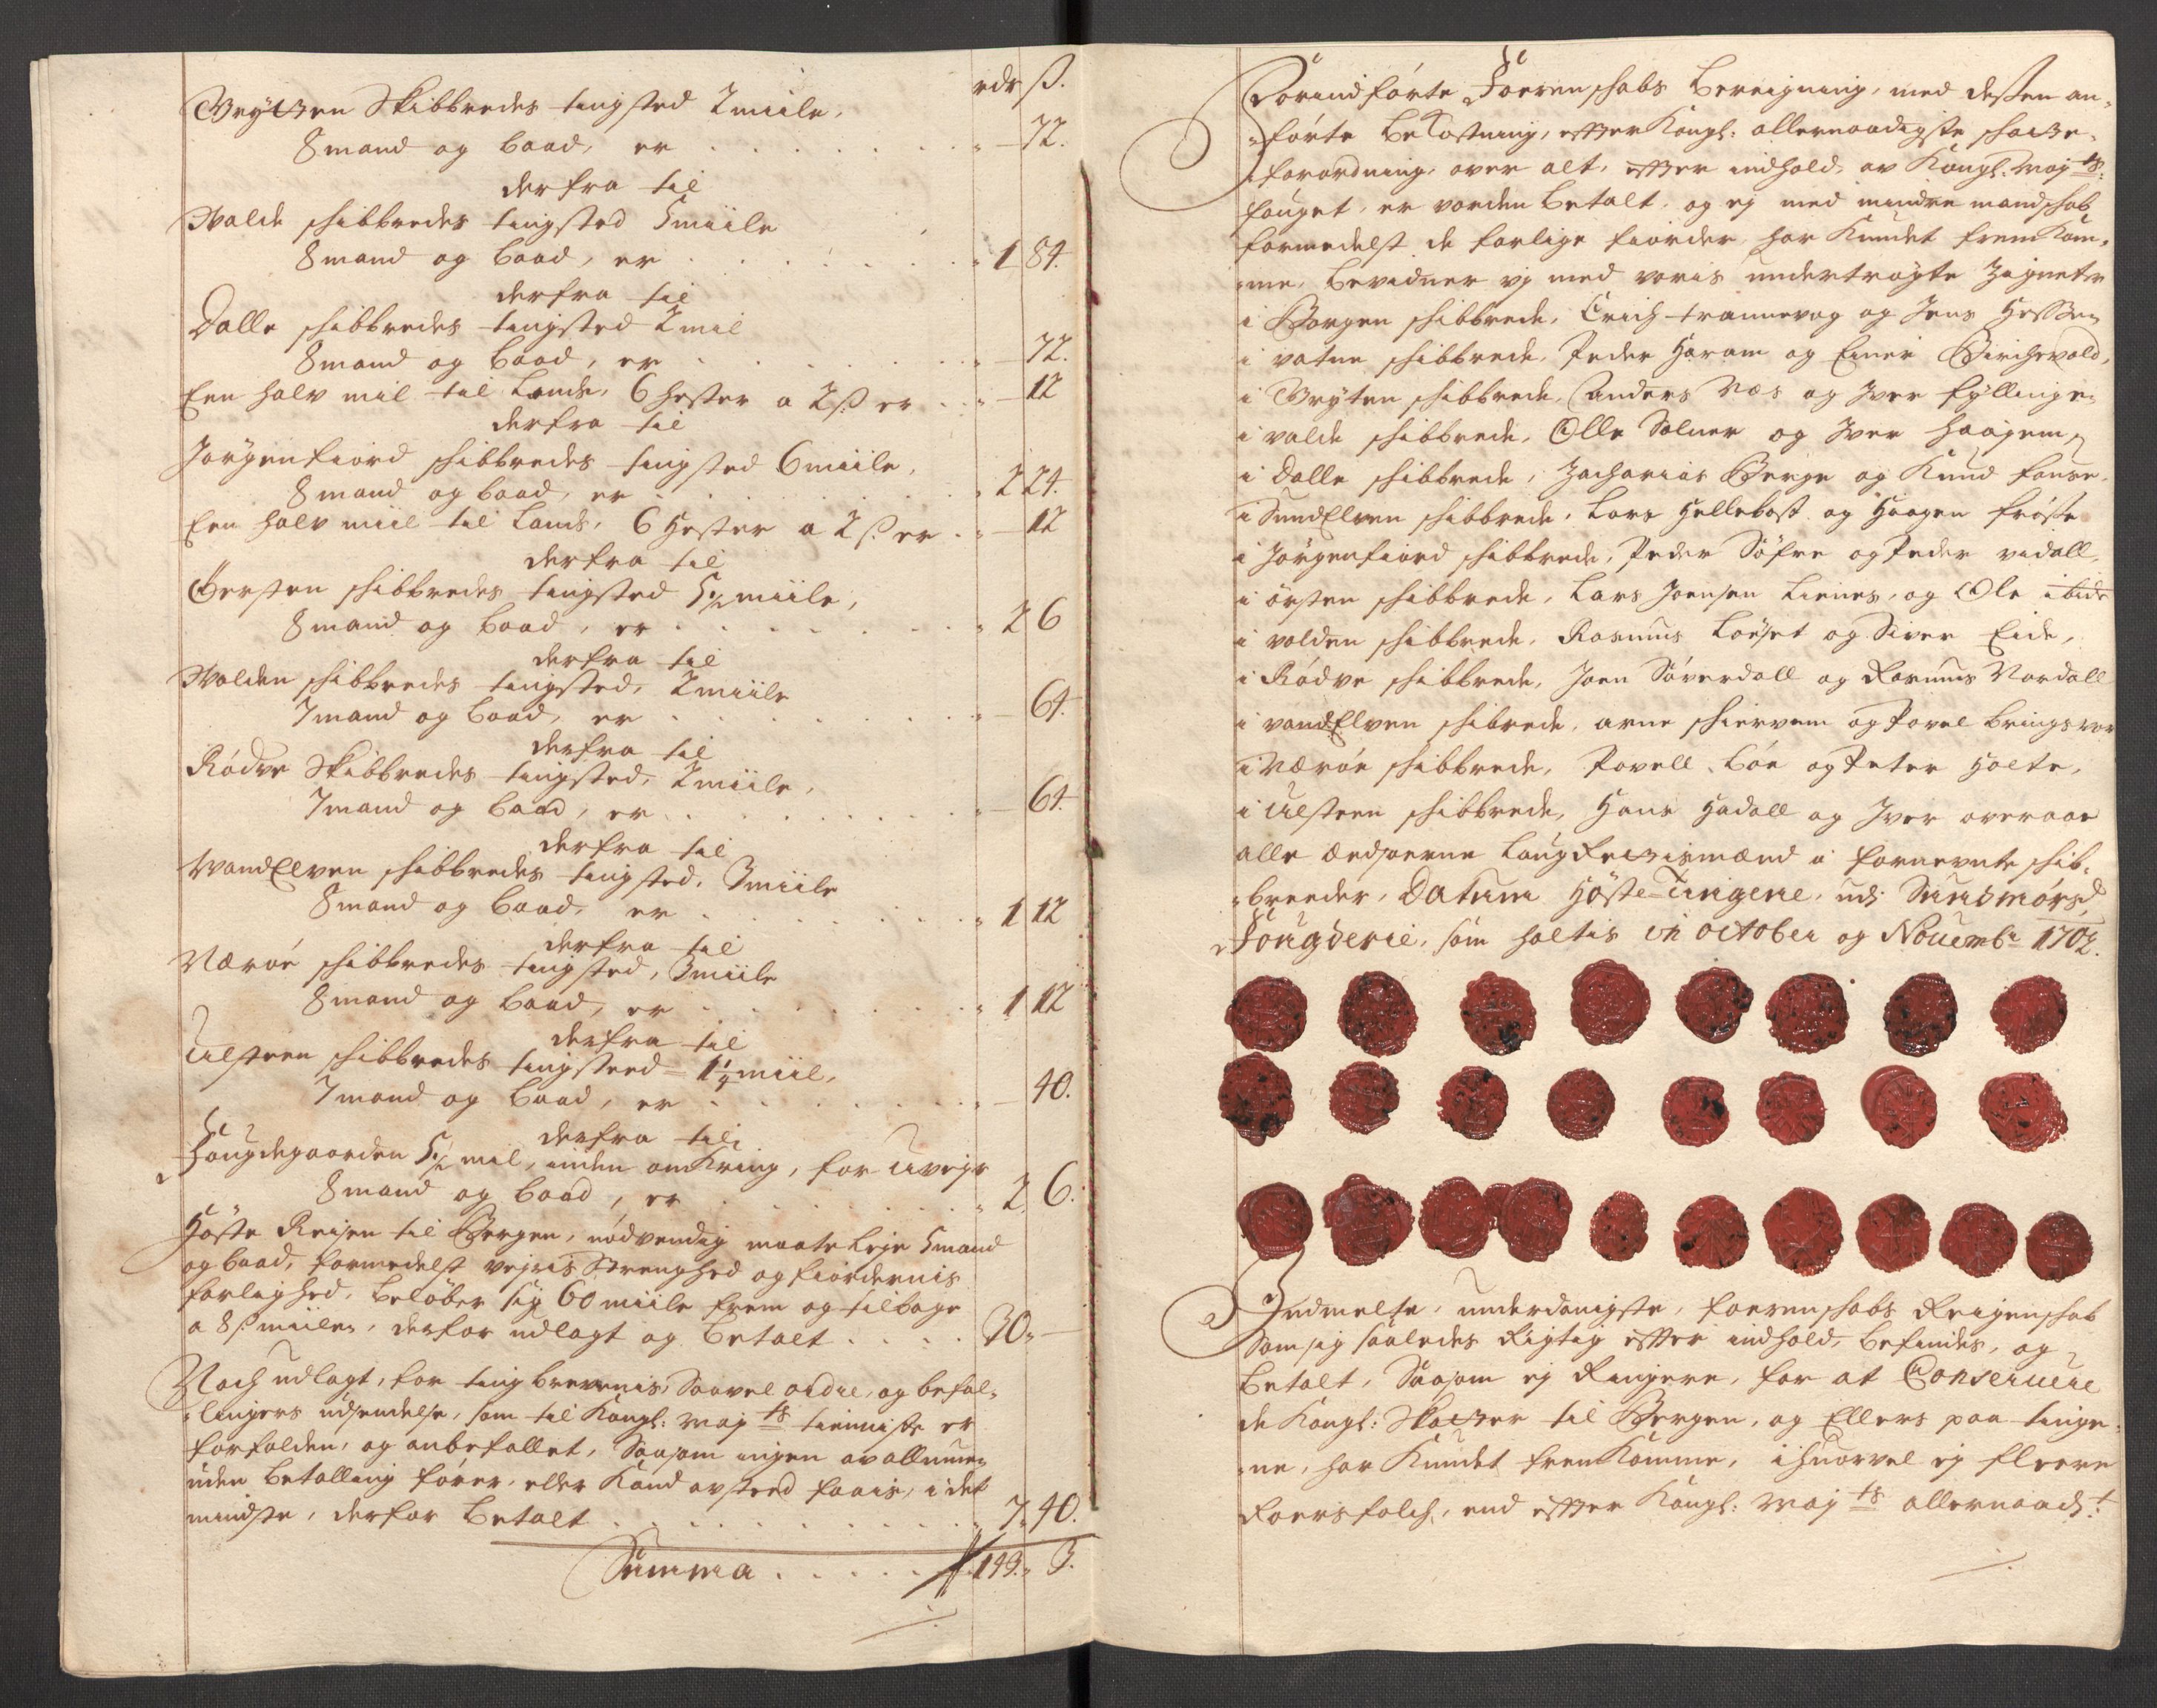 rdr ß.
Brytten Skibbredes tingsted 2 miile,
8 mand og baad, er . . . . . . . " — 72.
derfra til
Walde schibbredes tingsted 5 miile
8 mand og baad, er . . . . . . . " 1 84.
derfra til
Dalle schibbredes tingsted 2 mil
8 mand og baad, er . . . . . . " — 72.
Een halv mil til Lands, 6 hester a 2 ß er . . " — 12
derfra til
Jørgenfiord schibbredes tingsted 6 miile,
8 mand og baad, er . . . . . . " 2 24.
Een halv miil til Lands, 6 Hester a 2 ß. er . " — 12
derfra til
Ørsten schibbredes tingsted 5½ miile,
8 mand og baad, er . . . . . . . " 2 6
derfra til
Wolden schibbredes tingsted, 2 miile
7 mand og baad, er . . . . . . . " — 64.
derfra til
Rødve Skibbredes tingsted, 2 miile,
7 mand og baad, er . . . . . . . " — 64.
derfra til
WandElven schibbredes tingsted, 3 miile
8 mand og baad, er . . . . . . . " 1 12
derfra til
Værøe schibbredes tingsted, 3 miile
8 mand og baad, er . . . . . . . " 1 12
derfra til
Ulsteen schibbredes tingsteed 1¼ miil,
7 mand og baad, er . . . . . . . " — 40.
derfra til
Fougdegaarden 5½ mil, uden omkring, for Uvejr
8 mand og baad, er . . . . . . . " 2 6.
Høste Reisen til Bergen, nødvendig maate leje 5 mand
og baad, formedelst vejris Strenghed og fiordernis
farlighed, beløber sig 60 miile frem og tilbage
a 8 ß miilen, derfor udlagt og betalt . . . . 30 " —
Noch udlagt, for ting brevenis, Saavel ordre, og befal-
lingers udsendelse, som til Kongl: May ts tienniste er
forfalden, og anbefallet, Saasom ingen av allmuen
uden betalling fører, eller Kand avsteed faais, i det
mindste, derfor betalt . . . . . . . . . 7 " 40.
Summa . . . . . 149 " 3.
Forindførte Foerenschabs bereigning, med dessen an-
førte bekostning, efter Kongl: allernaadigste schatte-
forordning, over alt, efter indhold, av Kongl: May ts:
fouget, er vorden betalt, og ej med mindre mandschab
formedelst de farlige fiorder, har Kundet fremkom-
me, bevidner vj med voris undertrøgte Zigneter
i Borgen schibbrede, Erich trannevog og Jens Hessen
i vatne schibbrede, Peder Haram og Einer Birchevold,
i Bryten schibbrede, Anders Næs og Iver fyllinge
i valde schibbrede, Olle Solner og Iver Haagen
i Dalle schibbrede, Zacharias Berge og Knud fause
i SundElven schibbrede, Lars Hellebost og Haagen frøste
i Jørgenfiord schibbrede, Peder Søfre og Peder vidall
i ørsten schibbrede, Lars Joensen Lienes, og Ole ibid
i volden schibbrede, Rasmus Løvset og Siver Eide,
i Rødve schibbrede, Joen Søverdall og Rasmus Nordall
i vandElven schibrede, arne schierven og Povel bringsvor
i Værøe schibbrede, Povell Bøe og Peter Holte,
i Ulsteen schibbrede, Hans Hadall og Iver overaae
alle Ædsoerne Laug Rettismænd i fornevnte schib-
breeder, Datum Høste Tingene, udj Sundmørs
Fougderie, som holtis in october og Novemb: 1702.
Indmelte, underdanigste, foerenschabs Reigenschab
Som sig saaledes Rigtig efter indhold, befindes, og
betalt, Saasom ej Ringere, for at Conservere
de Kongl: Skatter til Bergen, og Ellers paa tinge-
ne, har Kundet fremkomme, ihvorvel ej fleere
Roersfolch, end efter Kongl: May ts allernaadt